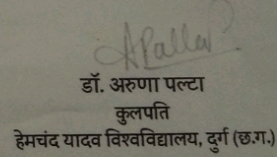 APalta
डॉ. अरुणा पल्टा
कुलपति
हेमचंद यादव विश्वविद्यालय, दुर्ग (छ.ग.)